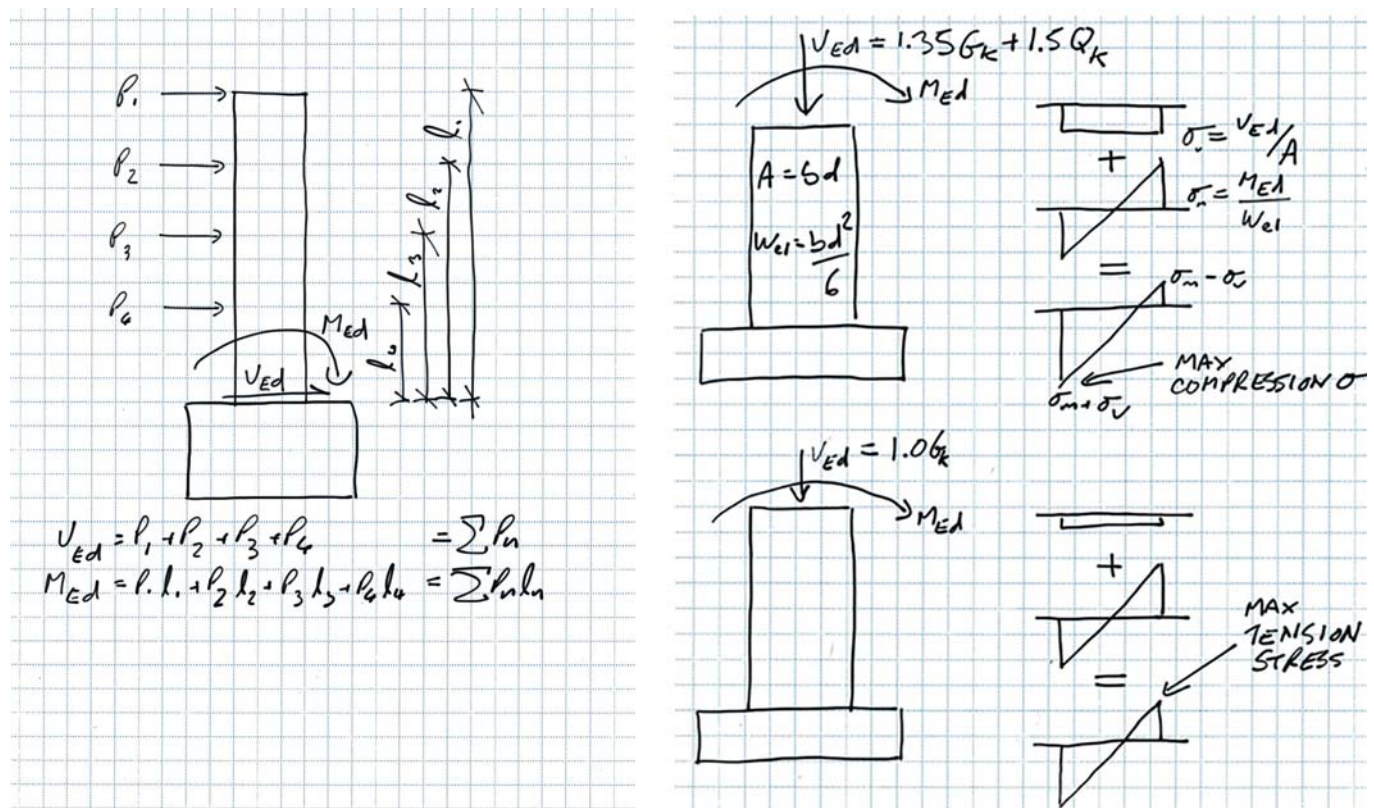 P₁
P₂
P₃
P₄
l₁
l₂
l₃
l₄
M_Ed
V_Ed
V_Ed = P₁ + P₂ + P₃ + P₄ = ΣPn
M_Ed = P₁l₁ + P₂l₂ + P₃l₃ + P₄l₄ = ΣPnln
V_Ed = 1.35Gₖ + 1.5Qₖ
M_Ed
A = bd
W_el = bd²/6
σᵥ = V_Ed/A
+
σₘ = M_Ed/W_el
=
σₘ - σᵥ
MAX
COMPRESSION σ
σₘ + σᵥ
V_Ed = 1.0Gₖ
M_Ed
+
MAX
TENSION
STRESS
=